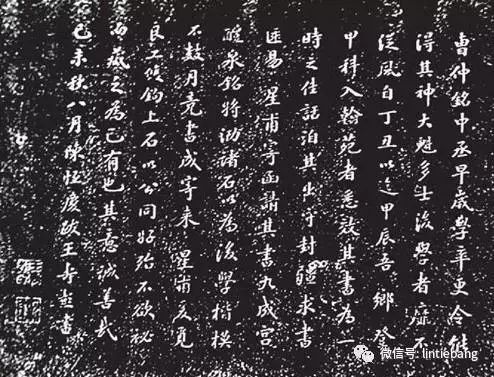 曹仲銘中丞早歲學率更令能
得其神大魁多士後學者靡不
從風自丁丑以迄甲辰吾鄉登
甲科入翰苑者悉效其書為一
時之佳話洎其出守封疆求書
匪易 星甫寄函請其書九成宮
醴泉銘將泐諸石以為後學楷模
不數月竟書成寄來 星甫爰覓
良工鉤上石以公同好殆不欲秘
而藏之為己有也其意誠善哉
己未秋八月陳恒慶跋王壽彭書
微信号: lintiebang